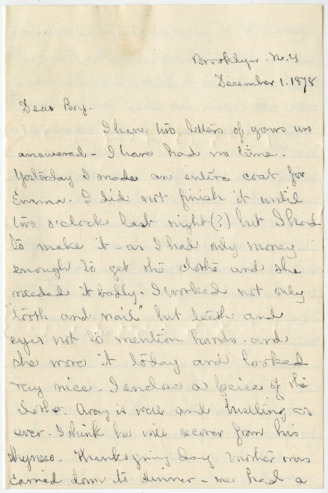 Brooklyn. N.Y
December 1. 1878
Dear Boy.
I have two letters of yours un
answered - I have had no time.
Yesterday I made an entire coat for
Emma. I did not finish it until
two o'clock last night (?) but I had
to make it - as I had only money
enough to get the cloth and she
needed it badly. I worked not only
"tooth and nail" but teeth and
eyes not to mention hands. and
she wore it today and looked
very nice. I enclose a peice of the
cloth. is well and as
ever. I think he will recover from his
shyness. Thanksgiving day Mother was
carried down to dinner - we had a